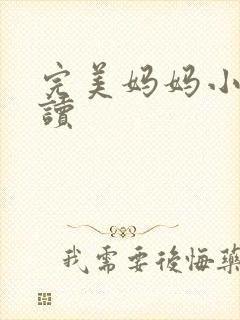 完美妈妈小
讀
我需要後悔藥